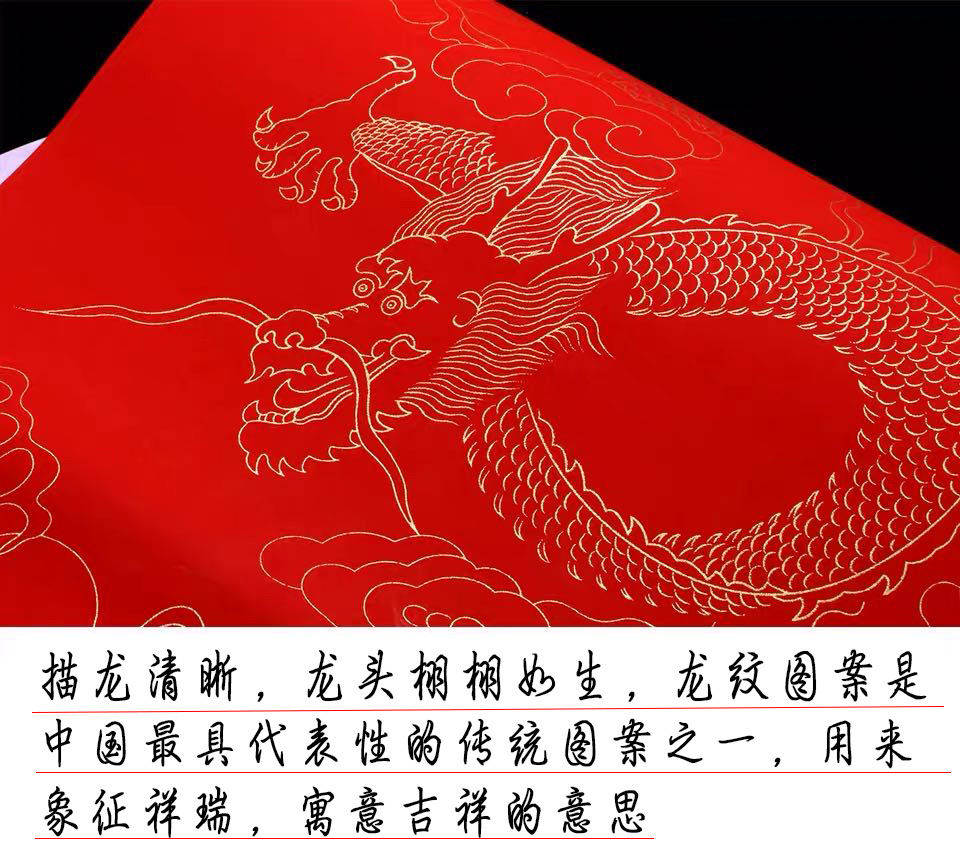 描龙清晰，龙头栩栩如生，龙纹图案是
中国最具代表性的传统图案之一，用来
象征祥瑞，寓意吉祥的意思